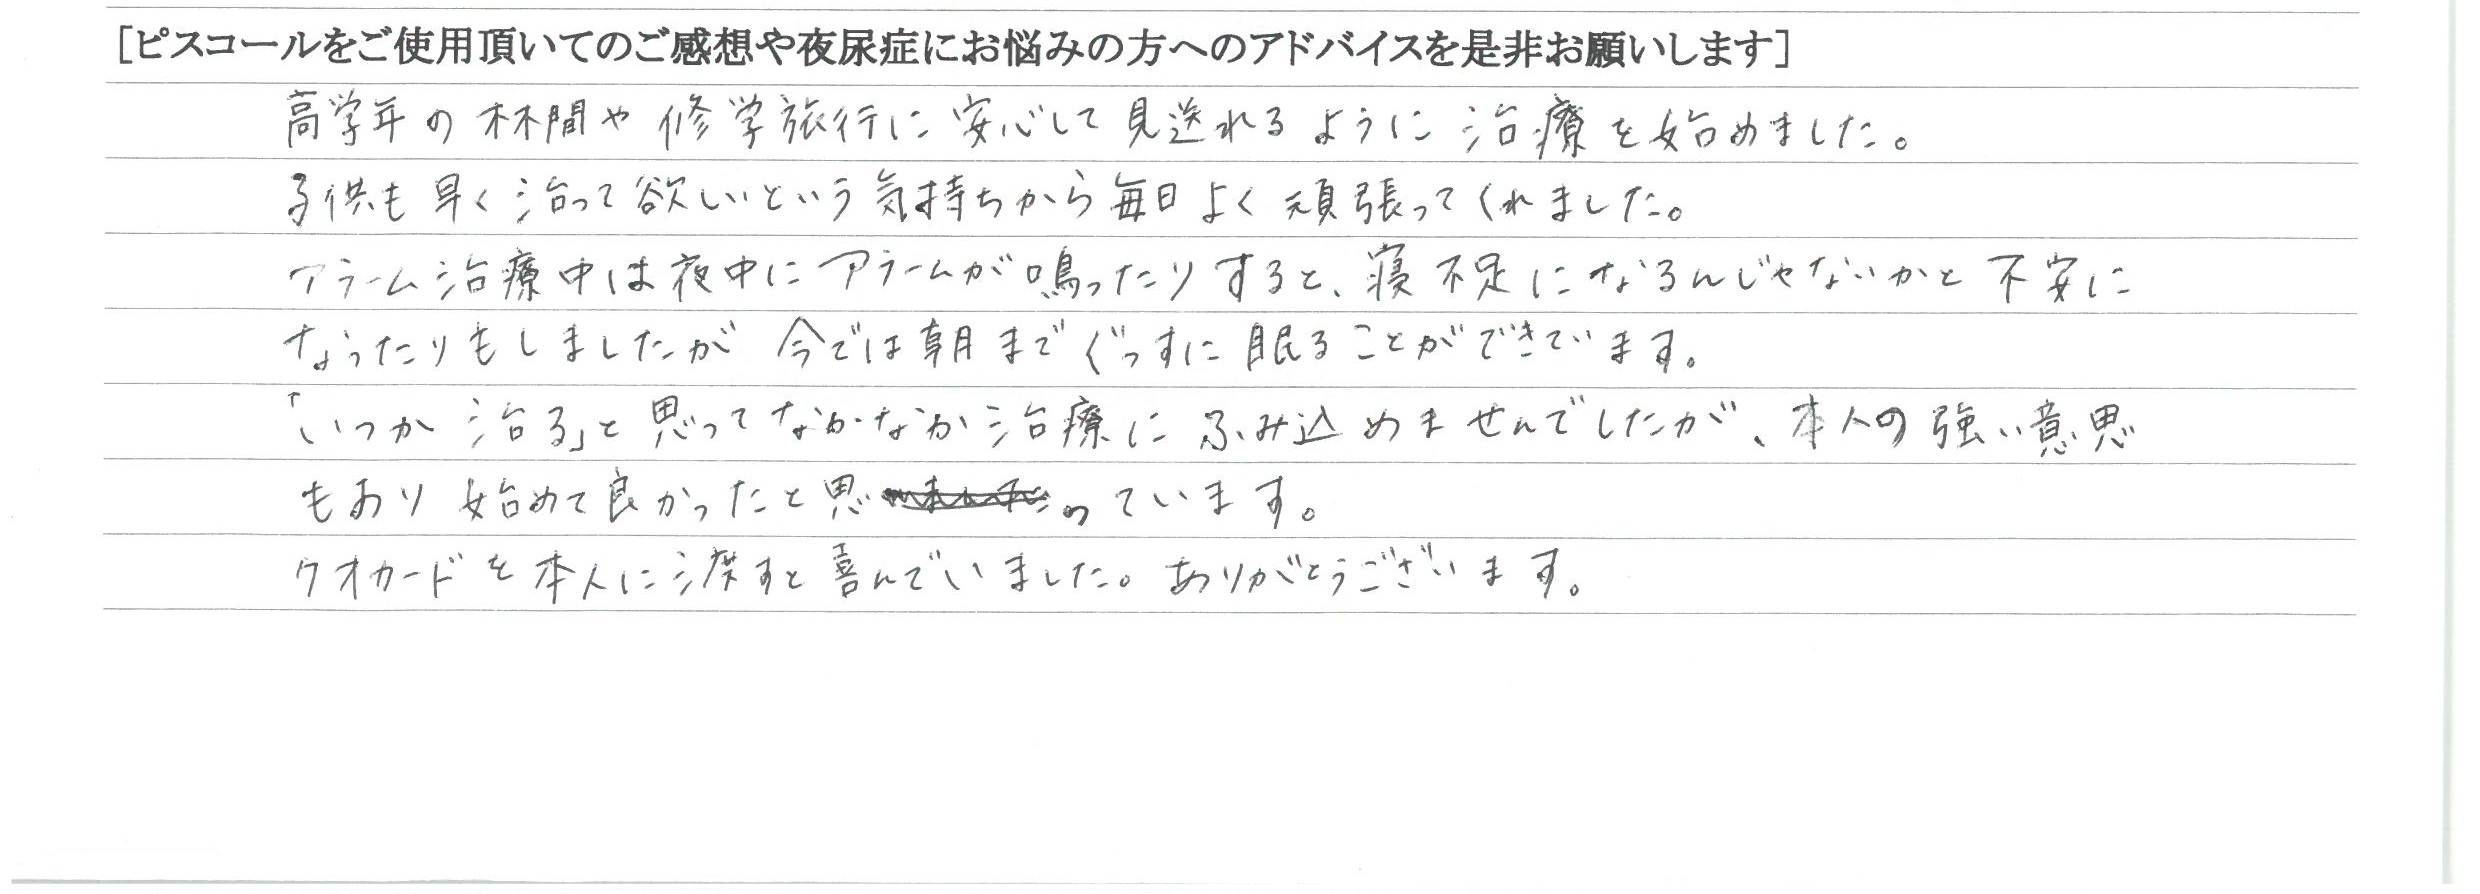 [ピスコールをご使用頂いてのご感想や夜尿症にお悩みの方へのアドバイスを是非お願いします]
高学年の林間や修学旅行に安心して見送れるように治療を始めました。
子供も早く治って欲しいという気持ちから毎日よく頑張ってくれました。
アラーム治療中は夜中にアラームが鳴ったりすると、寝不足になるんじゃないかと不安に
なったりもしましたが今では朝までぐっすに眠ることができています。
「いつか治る」と思ってなかなか治療にふみ込めませんでしたが、本人の強い意思
もあり始めて良かったと思っています。
クオカードを本人に渡すと喜んでいました。ありがとうございます。